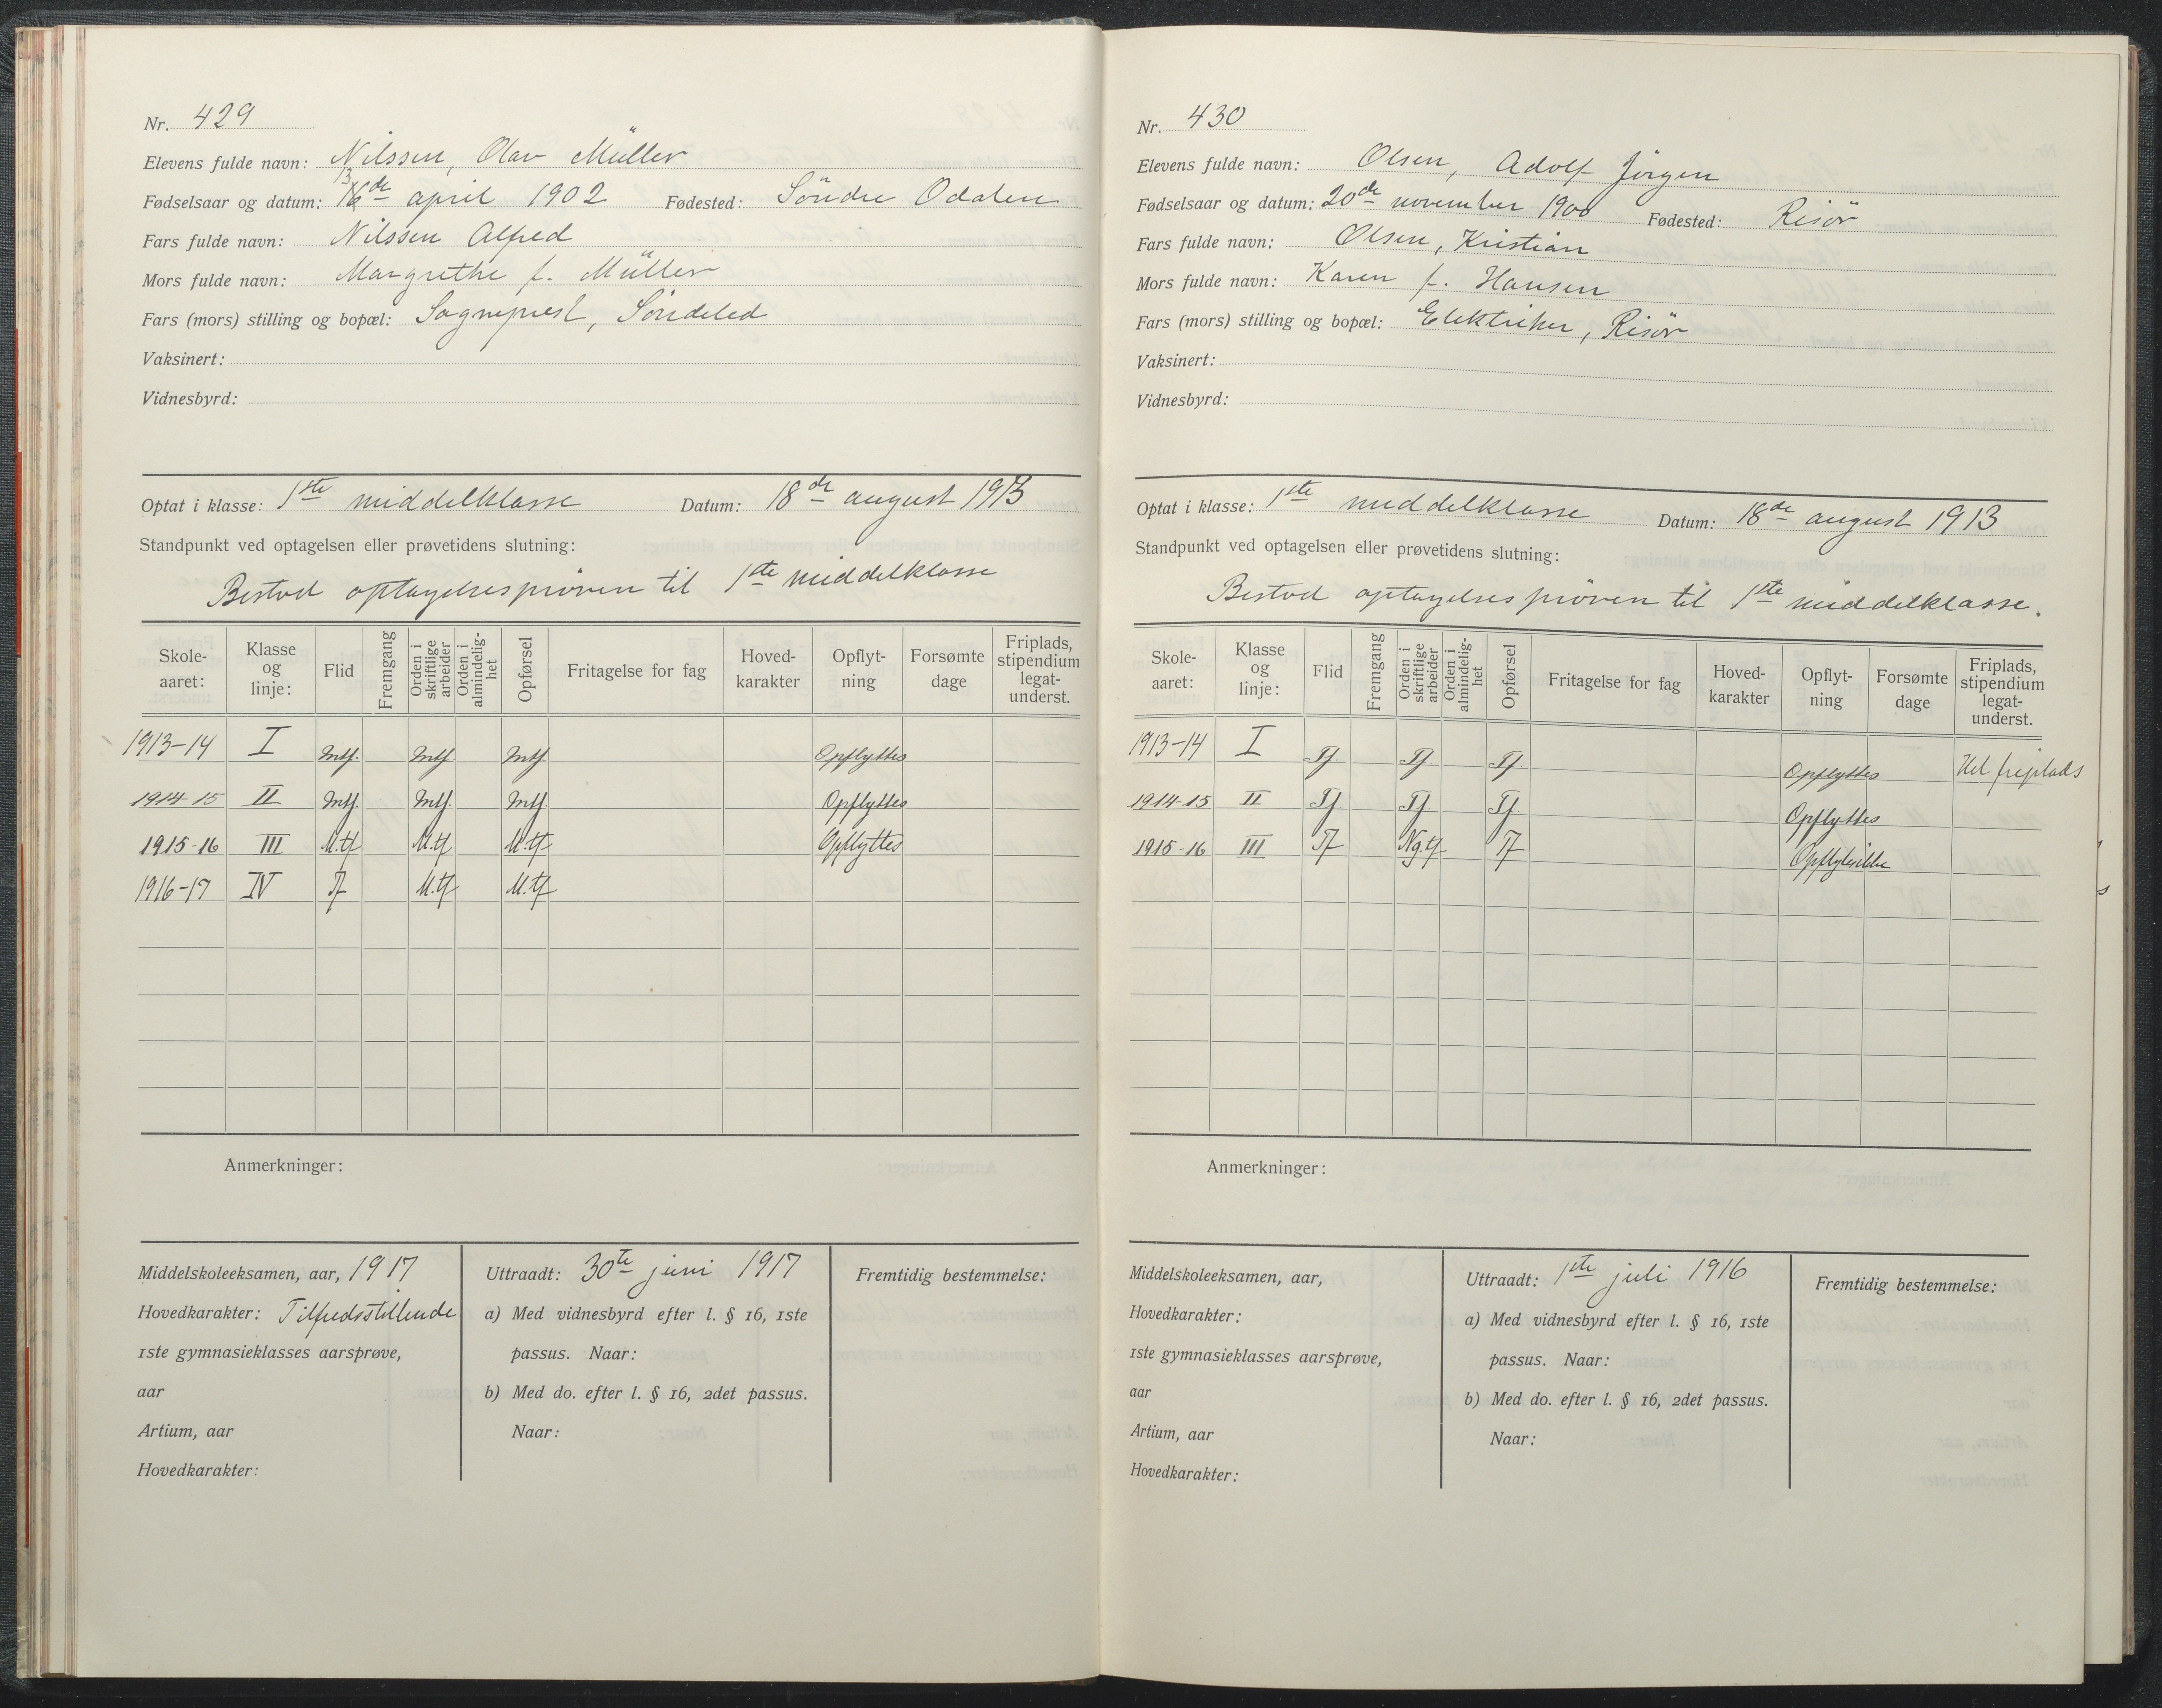 Nr. 429
Elevens fulde navn: Nilssen, Olav Müller
13
Fødselsaar og datum: 16de april 1902 Fødested: Söndre Odalen
Fars fulde navn: Nilssen Alfred
Mors fulde navn: Margrethe f. Müller
Fars (mors) stilling og bopæl: Sogneprest, Söndeled
Vaksinert:
Vidnesbyrd:
Optat i klasse: 1ste middelklasse Datum: 18de august 1913
Standpunkt ved optagelsen eller prøvetidens slutning:
Bestod optagelsespröven til 1ste middelklasse
Skole-aaret: Klasse og linje: Flid Fremgang Orden i skriftlige arbeider Orden i almindelig-het Opførsel Fritagelse for fag Hoved-karakter Opflyt-ning Forsømte dage Friplads, stipendium legat-underst.
1913-14 I Mtf. Mtf. Mtf. Opflyttes
1914-15 II Mtf. Mtf. Mtf. Opflyttes
1915-16 III M.tf M.tf M.tf Opflyttes
1916-17 IV Tf M.tf M.tf
Anmerkninger:
Middelskoleeksamen, aar, 1917
Hovedkarakter: Tilfredsstillende
1ste gymnasieklasses aarsprøve,
aar
Artium, aar
Hovedkarakter:
Uttraadt: 30te juni 1917
a) Med vidnesbyrd efter l. § 16, 1ste
passus. Naar:
b) Med do. efter l. § 16, 2det passus.
Naar:
Fremtidig bestemmelse:
Nr. 430
Elevens fulde navn: Olsen, Adolf Jörgen
Fødselsaar og datum: 20de november 1900 Fødested: Risör
Fars fulde navn: Olsen, Kristian
Mors fulde navn: Karen f. Hansen
Fars (mors) stilling og bopæl: Elektriker, Risör
Vaksinert:
Vidnesbyrd:
Optat i klasse: 1ste middelklasse Datum: 18de august 1913
Standpunkt ved optagelsen eller prøvetidens slutning:
Bestod optagelsespröven til 1ste middelklasse.
Skole-aaret: Klasse og linje: Flid Fremgang Orden i skriftlige arbeider Orden i almindelig-het Opførsel Fritagelse for fag Hoved-karakter Opflyt-ning Forsømte dage Friplads, stipendium legat-underst.
1913-14 I Tf. Tf. Tf. Opflyttes Hel friplads
1914-15 II Tf. Tf. Tf. Opflyttes
1915-16 III Tf Ng.tf Tf Opflyt. ikke
Anmerkninger:
Middelskoleeksamen, aar,
Hovedkarakter:
1ste gymnasieklasses aarsprøve,
aar
Artium, aar
Hovedkarakter:
Uttraadt: 1ste juli 1916
a) Med vidnesbyrd efter l. § 16, 1ste
passus. Naar:
b) Med do. efter l. § 16, 2det passus.
Naar:
Fremtidig bestemmelse: